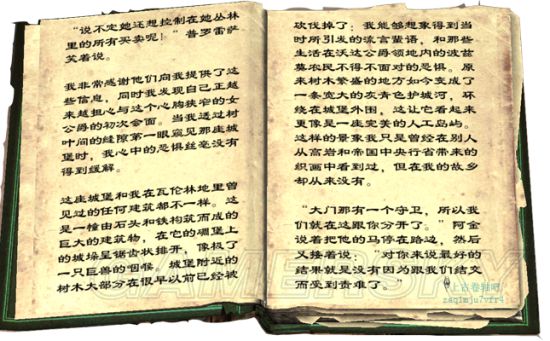 "说不定她还想控制在她丛林
里的所有买卖呢！"普罗雷萨
笑着说。
我非常感谢他们向我提供了这
些信息，同时我发现自己正越
来越担心与这个心胸狭窄的女
公爵的初次会面。当我透过树
叶间的缝隙第一眼窥见那座城
堡时，我心中的恐惧丝毫没有
得到缓解。
这座城堡和我在瓦伦林地里曾
见过的任何建筑都不一样。这
是一幢由石头和铁构筑而成的
巨大的建筑物，在它的碉堡上
的城垛呈锯齿状排开，像极了
一只巨兽的
城堡附近的
树木大部分在很早以前已经被
砍伐掉了：我能够想象得到当
时所引发的流言蜚语，和那些
生活在沃达公爵领地内的波兹
莫农民不得不面对的恐惧。原
来树木繁盛的地方如今变成了
一条宽大的灰青色护城河，环
绕在城堡外围，这让它看起来
更像是一座完美的人工岛屿。
这样的景象我只是曾经在别人
从高岩和帝国中央行省带来的
织画中看到过，但在我的故乡
却从来没有。
"大门那有一个守卫，所以我
们就在这跟你分开了。"阿金
说着把他的马停在路边，然后
又接着说：对你来说最好的
结果就是没有因为跟我们结交
而受到责难了。"
上古卷轴吧
zaqimju7vfr4
GAMERSKY